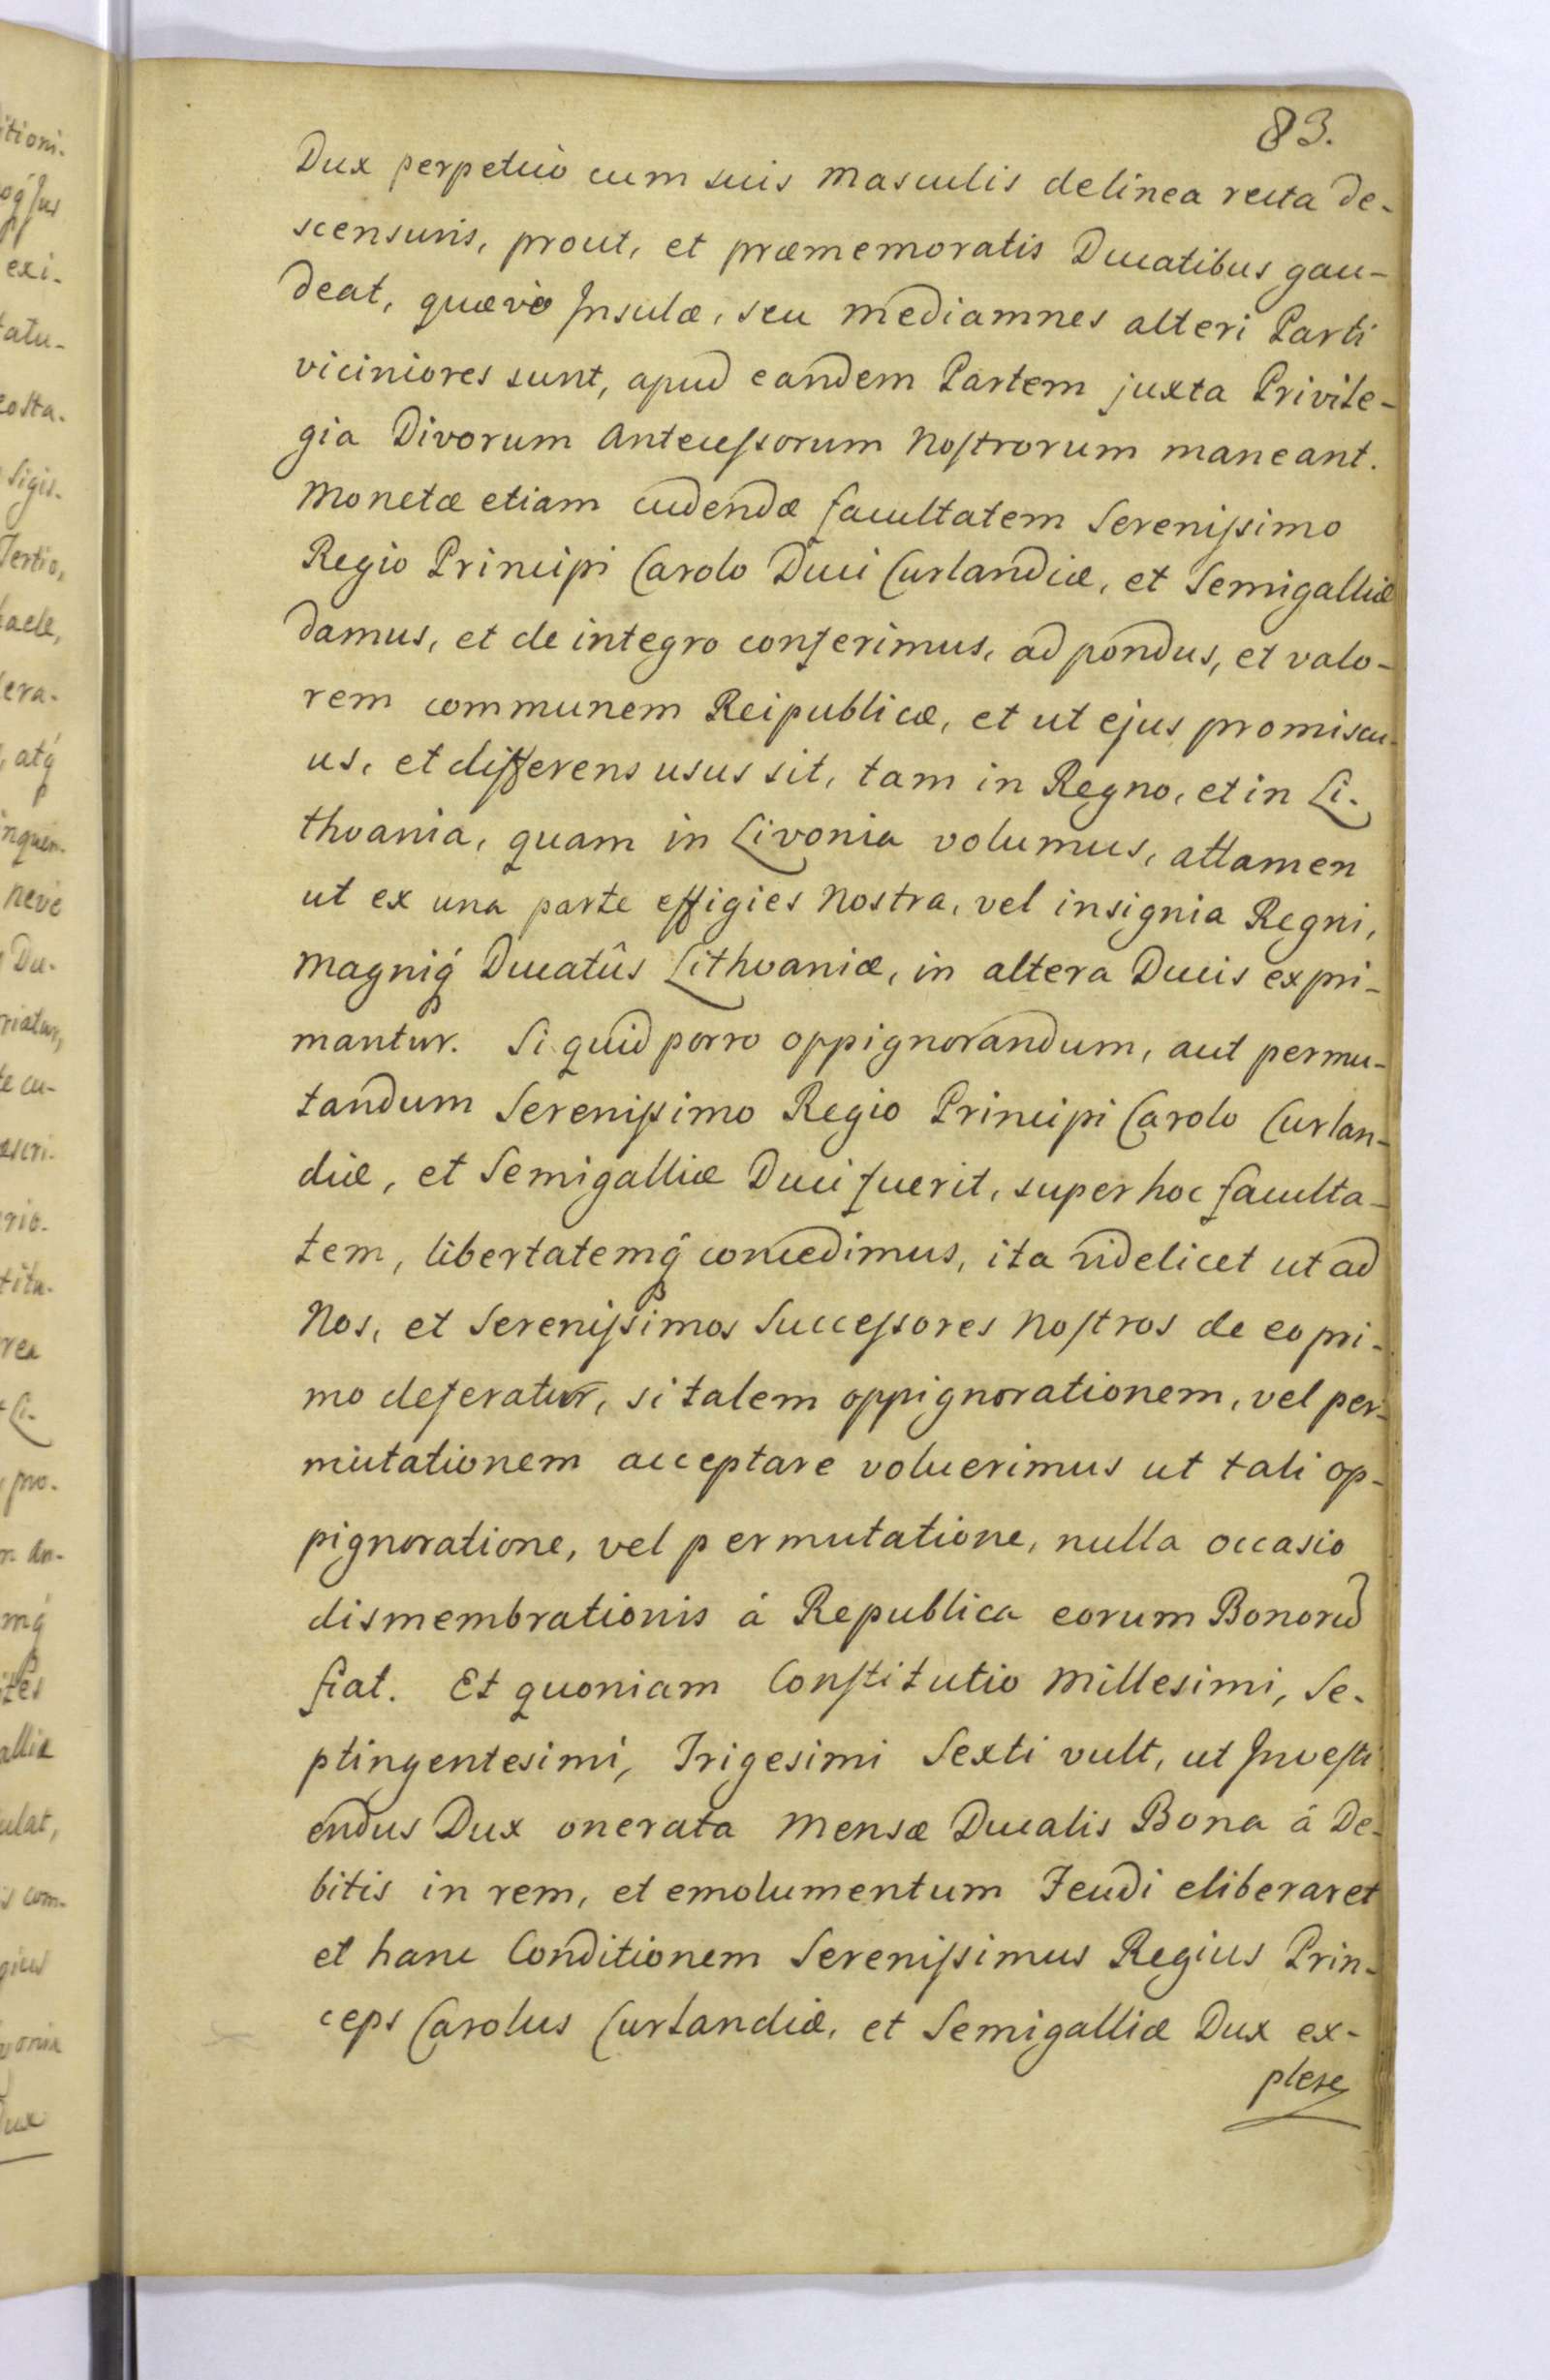 83.
Dux perpetuò cum suis masculis de linea recta de-
scensuris, prout, et præmemoratis Ducatibus gau-
deat, quævè Insulæ, seu mediamnes alteri Parti
viciniores sunt, apud eandem Partem juxta Privile-
gia Divorum Antecessorum Nostrorum maneant.
Monetæ etiam cudendæ facultatem Serenissimo
Regio Principi Carolo Duci Curlandiæ, et Semigalliæ
damus, et de integro conferimus, ad pondus, et valo-
rem communem Reipublicæ, et ut ejus promiscu-
us, et differens usus sit, tam in Regno, et in Li-
thvania, quam in Livonia volumus, attamen
ut ex una parte effigies Nostra, vel insignia Regni,
Magniq́ Ducatûs Lithvaniæ, in altera Ducis expri-
mantur. Si quid porro oppignorandum, aut permu-
tandum Serenissimo Regio Principi Carolo Curlan-
diæ, et Semigalliæ Duci fuerit, super hoc faculta-
tem, libertatemq́ concedimus, ita videlicet ut ad
Nos, et Serenissimos Successores Nostros de eo pri-
mo deferatur, si talem oppignorationem, vel per-
mutationem acceptare voluerimus ut tali op-
pignoratione, vel permutatione, nulla occasio
dismembrationis á Republica eorum Bonorū
fiat. Et quoniam Constitutio Millesimi, Se-
ptingentesimi, Trigesimi Sexti vult, ut Investi
endus Dux onerata Mensæ Ducalis Bona á De-
bitis in rem, et emolumentum Feudi eliberaret
et hanc Conditionem Serenissimus Regius Prin-
ceps Carolus Curlandiæ, et Semigalliæ Dux ex-
plere